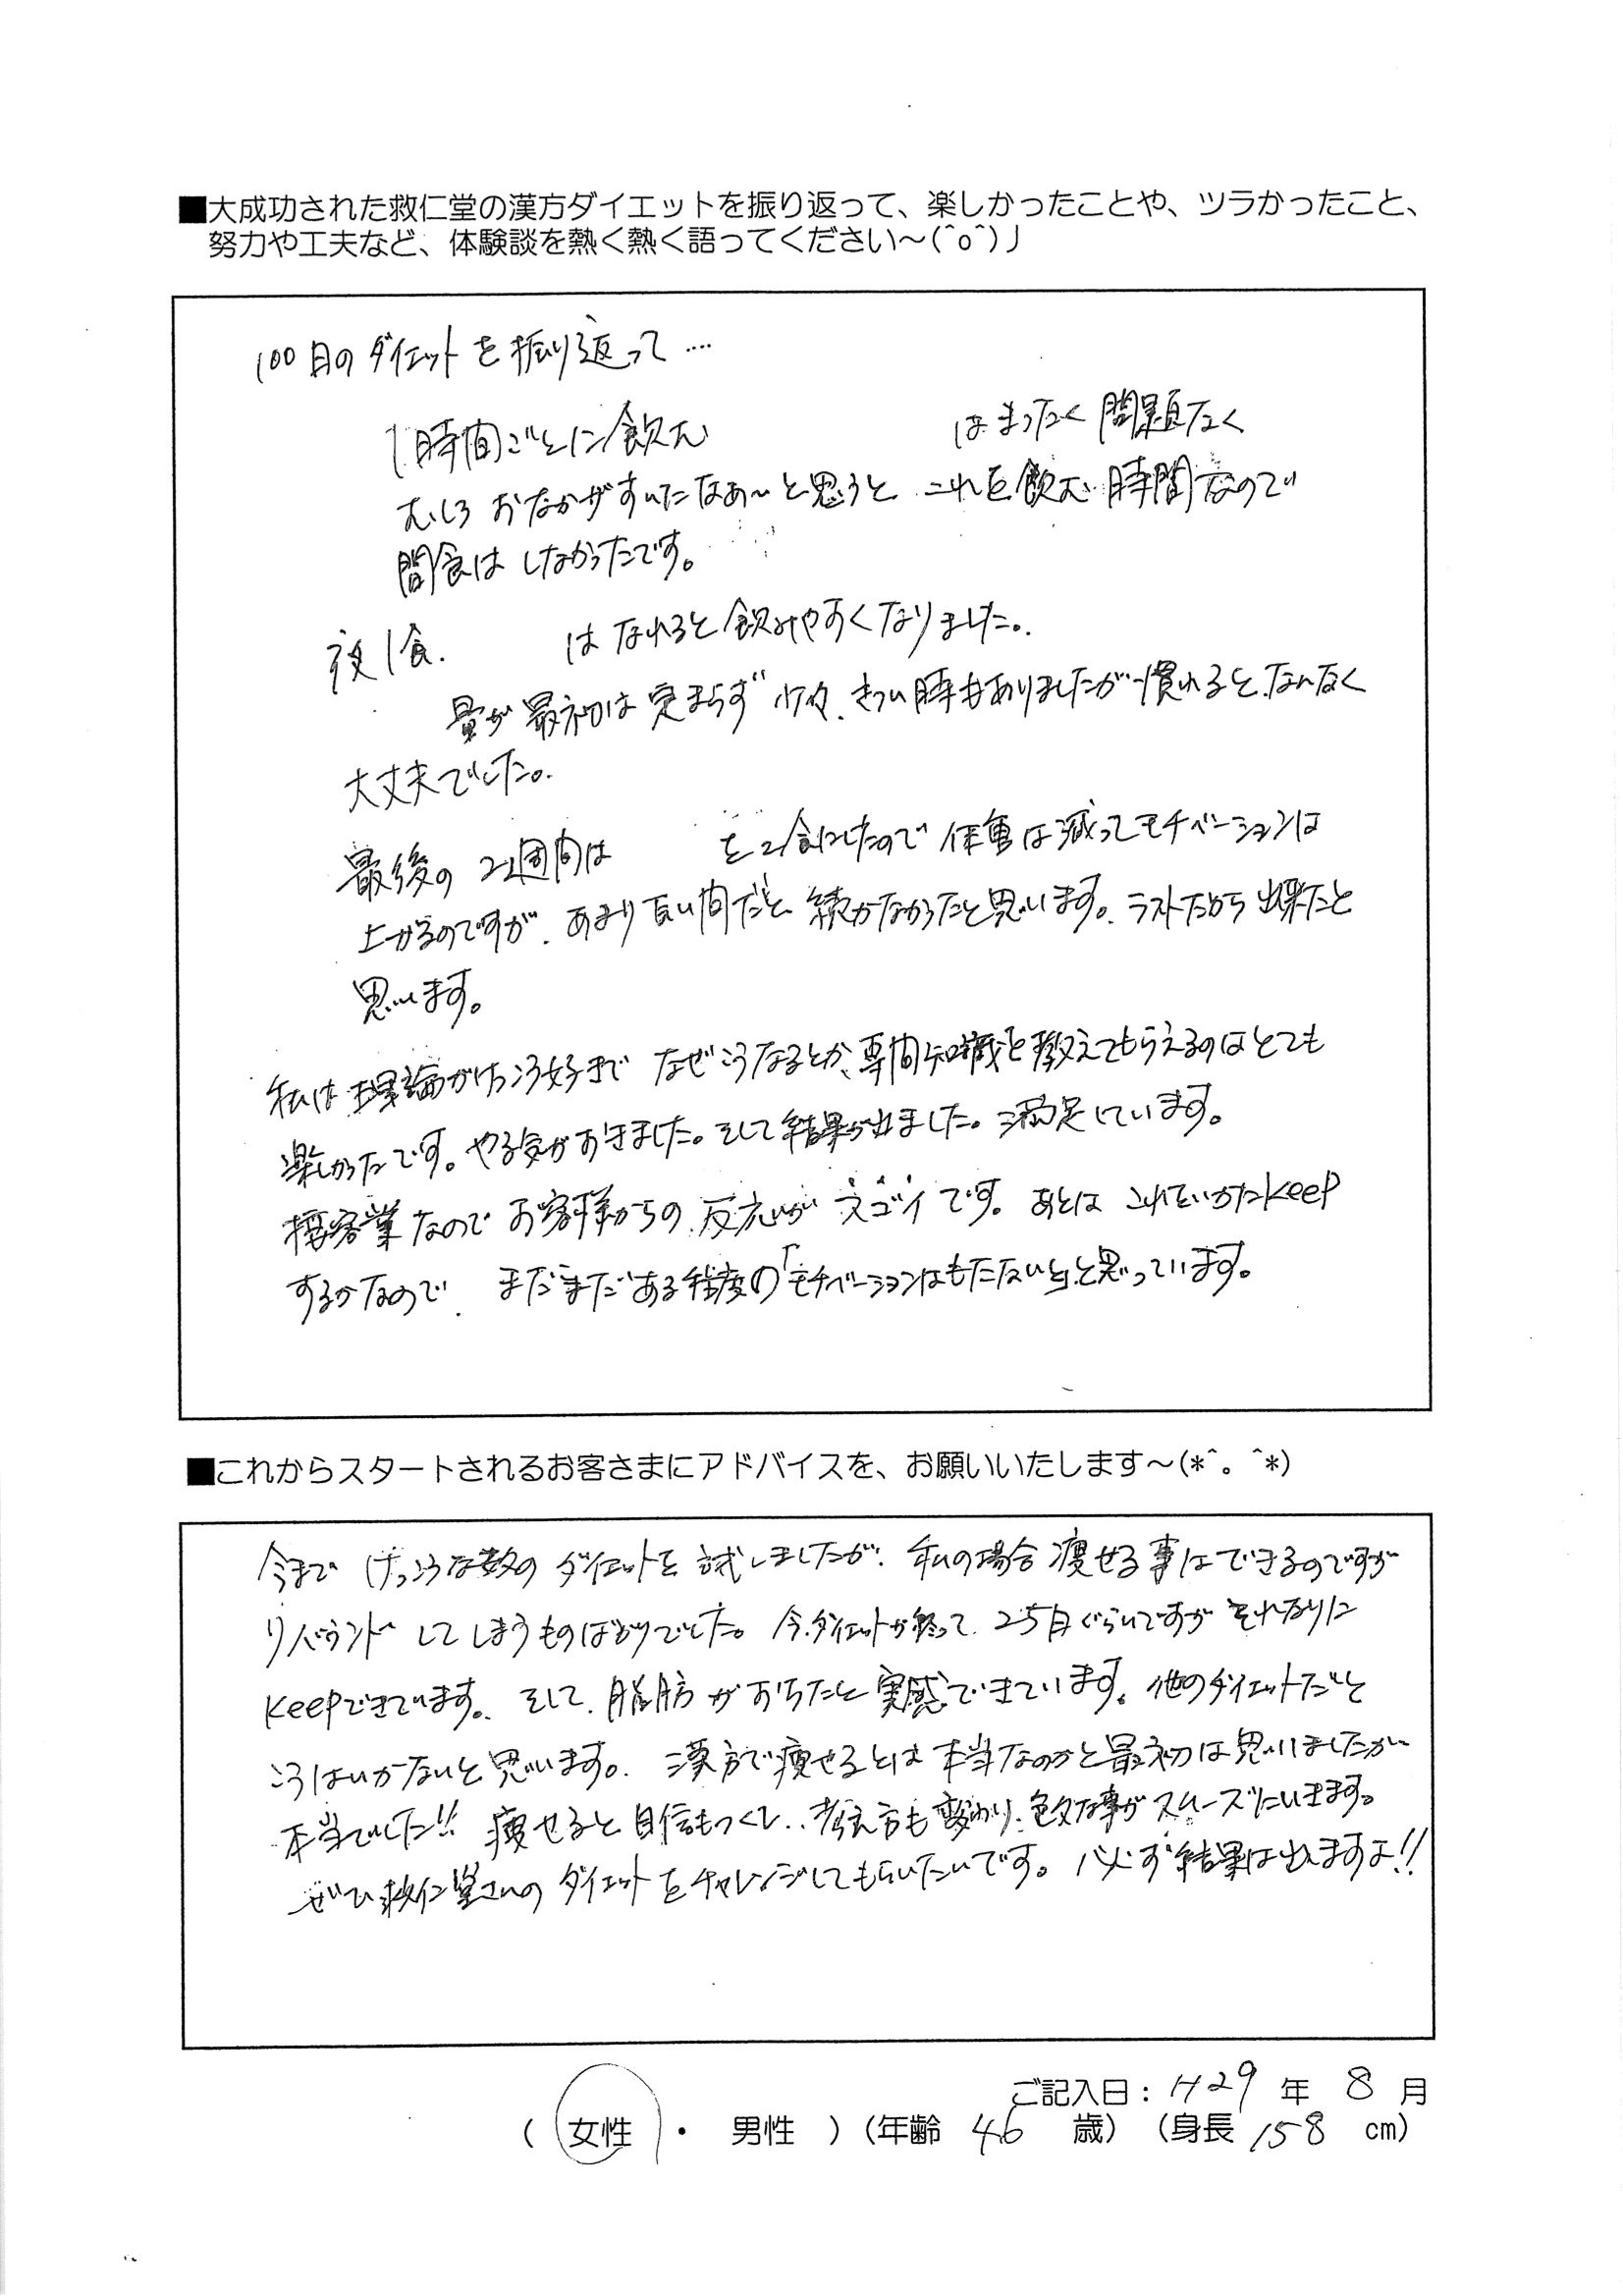 ■大成功された救仁堂の漢方ダイエットを振り返って、楽しかったことや、ツラかったこと、
努力や工夫など、体験談を熱く熱く語ってください〜(^o^)丿
100日のダイエットを振り返って….
1時間ごとに飲む はまったく問題なく
むしろ おなかがすいたなぁ〜と思うと これを飲む時間なので
間食は しなかったです。
夜1食. は なれると飲みやすくなりました。
量が最初は定まらず 少々、きつい時もありましたが慣れると、なんなく
大丈夫でした。
最後の2週間は を2食にしたので 体重は減ってモチベーションは
上がるのですが、あまり長い間だと 続かなかったと思います。ラストだから出来たと
思います。
私は理論がけっこう好きで なぜこうなるとか、専門知識を教えてもらえるのはとても
楽しかったです。やる気がおきました。そして結果が出ました。満足しています。
接客業なので お客様からの反応が スゴイです。あとは これをいかにkeep
するかなので、まだまだある程度の「モチベーションはもたないと」と思っています。
■これからスタートされるお客さまにアドバイスを、お願いいたします〜(*^。^*)
今まで けっこうな数の ダイエットを 試しましたが、私の場合 痩せる事はできるのですが
リバウンド してしまうものばかりでした。今、ダイエットが終って、25日ぐらいですが それなりに
keepできています。そして、脂肪がおちたと実感できています。他のダイエットだと
こうはいかないと思います。漢方で痩せるとは本当なのかと最初は思いましたが
本当でした!! 痩せると自信もつくし、考え方も変わり、色々な事がスムーズにいきます。
ぜひ救仁堂さんの ダイエットをチャレンジしてもらいたいです。必ず結果は出ますよ!!
ご記入日：H29 年 8 月
( 女性 ・ 男性 ) (年齢 46 歳) (身長 158 cm)